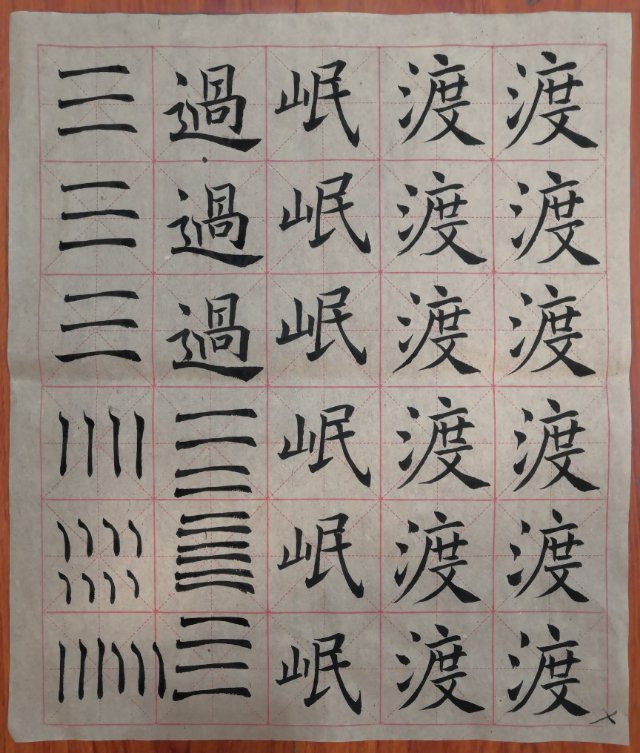 渡渡渡渡渡渡
渡渡渡渡渡渡
岷岷岷岷岷岷
過過過
三三三